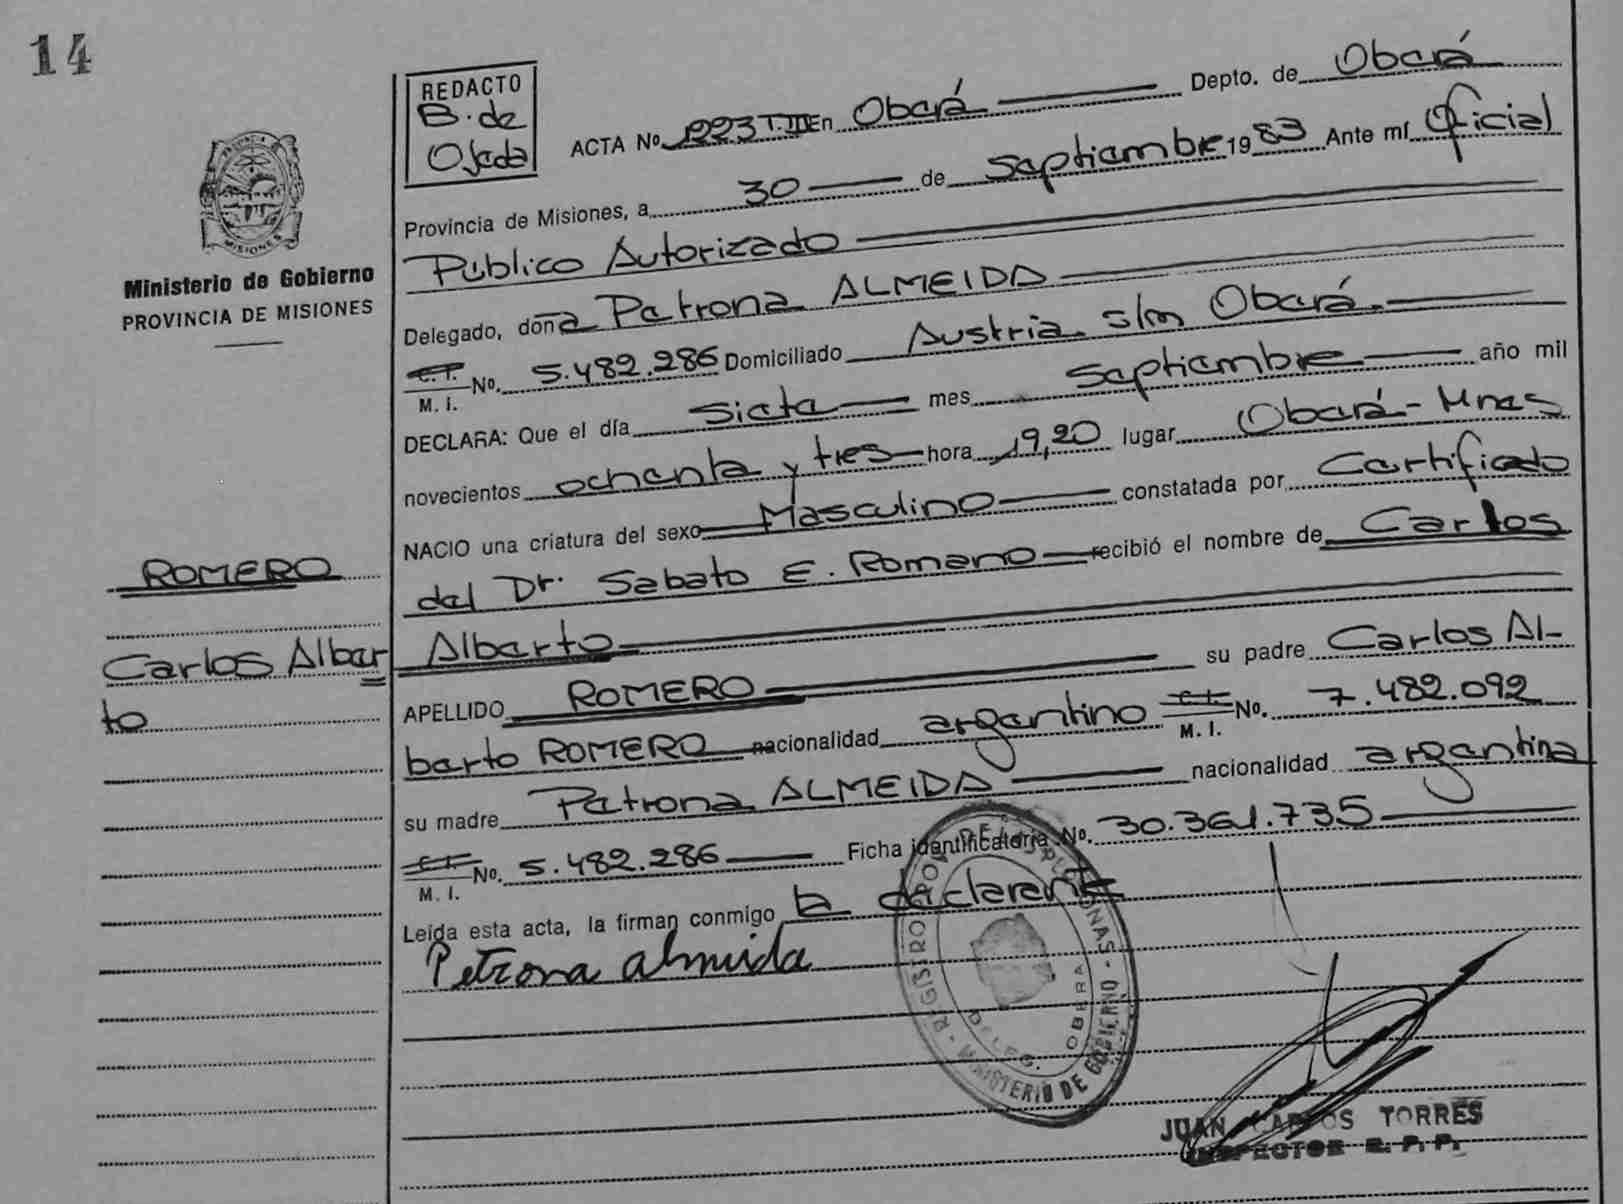 14
REDACTO
B. de
Ojeda
ACTA No. 1223 T.III En Oberá Depto. de Oberá
Provincia de Misiones, a 30 de Septiembre 1983 Ante mí Oficial
Público Autorizado
Delegado, doña Petrona ALMEIDA
C.I. M. I. No. 5.482.286 Domiciliado Austria s/n Oberá.
DECLARA: Que el día Siete mes Septiembre año mil
novecientos ochenta y tres hora 19,20 lugar Oberá - Mnes
NACIO una criatura del sexo Masculino constatada por Certificado
del Dr. Sabato E. Romano recibió el nombre de Carlos
Alberto
APELLIDO ROMERO su padre Carlos Al-
berto ROMERO nacionalidad argentino C.I. M. I. No. 7.482.092
su madre Petrona ALMEIDA nacionalidad argentina
C.I. M. I. No. 5.482.286 Ficha identificatoria No. 30.361.735
Leída esta acta, la firman conmigo la declarante
Petrona almeida
Ministerio de Gobierno
PROVINCIA DE MISIONES
MISIONES
ROMERO
Carlos Alber
to
REGISTRO PROV. DE LAS PERSONAS - MINISTERIO DE GOBIERNO
DELEG. OBERA
JUAN CARLOS TORRES
INSPECTOR R. P. P.